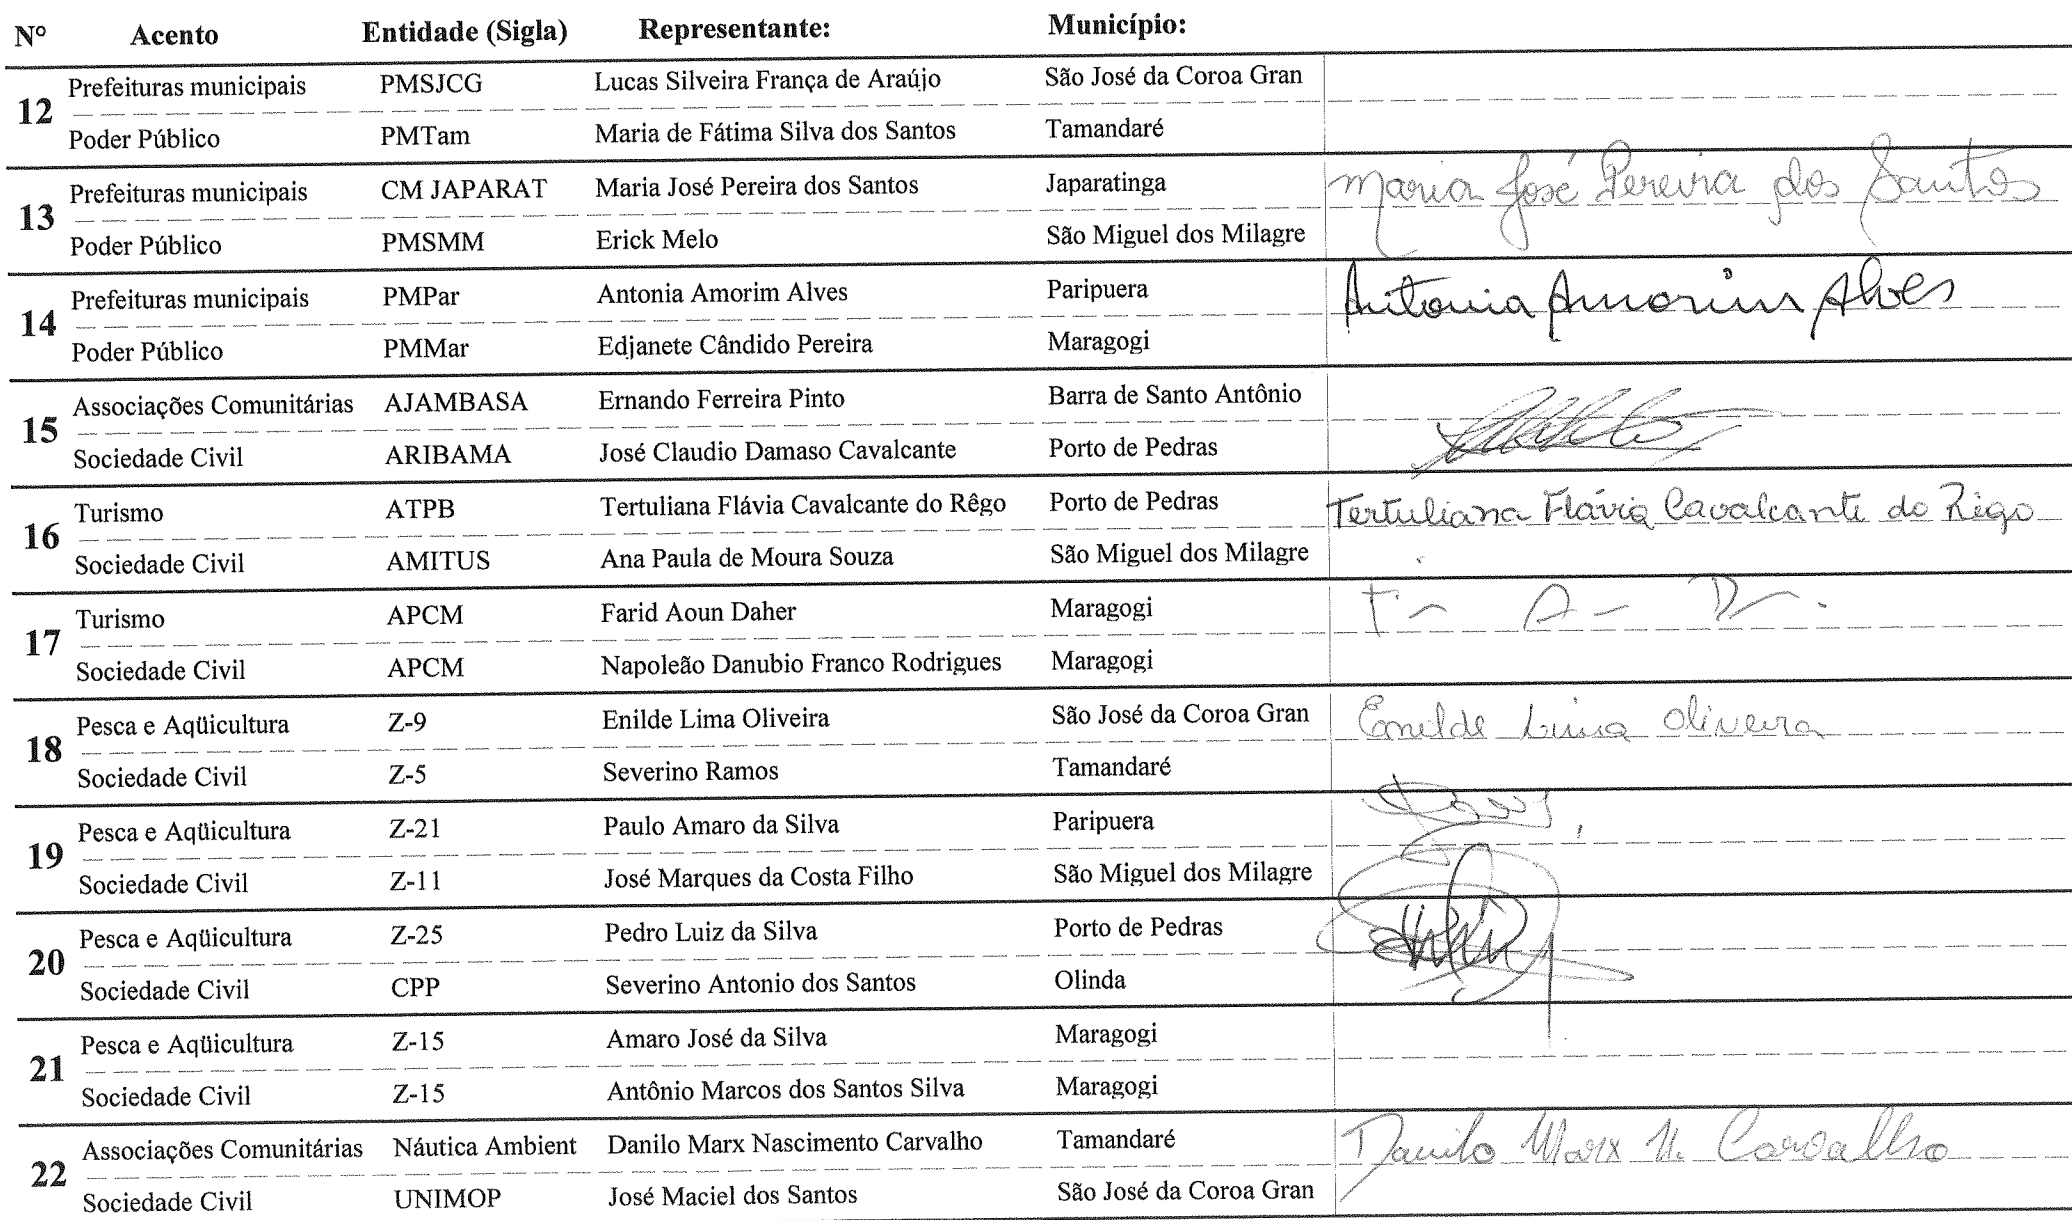 Nº Acento Entidade (Sigla) Representante: Município:
12
Prefeituras municipais PMSJCG Lucas Silveira França de Araújo São José da Coroa Gran
Poder Público PMTam Maria de Fátima Silva dos Santos Tamandaré
13
Prefeituras municipais CM JAPARAT Maria José Pereira dos Santos Japaratinga Maria José Pereira dos Santos
Poder Público PMSMM Erick Melo São Miguel dos Milagre
14
Prefeituras municipais PMPar Antonia Amorim Alves Paripuera Antonia Amorim Alves
Poder Público PMMar Edjanete Cândido Pereira Maragogi
15
Associações Comunitárias AJAMBASA Ernando Ferreira Pinto Barra de Santo Antônio
Sociedade Civil ARIBAMA José Claudio Damaso Cavalcante Porto de Pedras
16
Turismo ATPB Tertuliana Flávia Cavalcante do Rêgo Porto de Pedras Tertuliana Flávia Cavalcante do Rêgo
Sociedade Civil AMITUS Ana Paula de Moura Souza São Miguel dos Milagre
17
Turismo APCM Farid Aoun Daher Maragogi
Sociedade Civil APCM Napoleão Danubio Franco Rodrigues Maragogi
18
Pesca e Aqüicultura Z-9 Enilde Lima Oliveira São José da Coroa Gran Enilde Lima Oliveira
Sociedade Civil Z-5 Severino Ramos Tamandaré
19
Pesca e Aqüicultura Z-21 Paulo Amaro da Silva Paripuera
Sociedade Civil Z-11 José Marques da Costa Filho São Miguel dos Milagre
20
Pesca e Aqüicultura Z-25 Pedro Luiz da Silva Porto de Pedras
Sociedade Civil CPP Severino Antonio dos Santos Olinda
21
Pesca e Aqüicultura Z-15 Amaro José da Silva Maragogi
Sociedade Civil Z-15 Antônio Marcos dos Santos Silva Maragogi
22
Associações Comunitárias Náutica Ambient Danilo Marx Nascimento Carvalho Tamandaré Danilo Marx N. Carvalho
Sociedade Civil UNIMOP José Maciel dos Santos São José da Coroa Gran